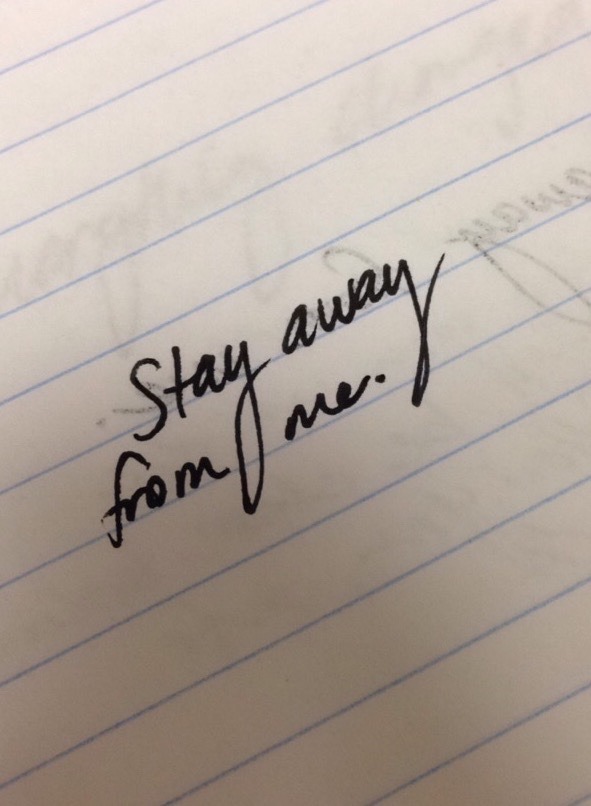 Stay away
from me.